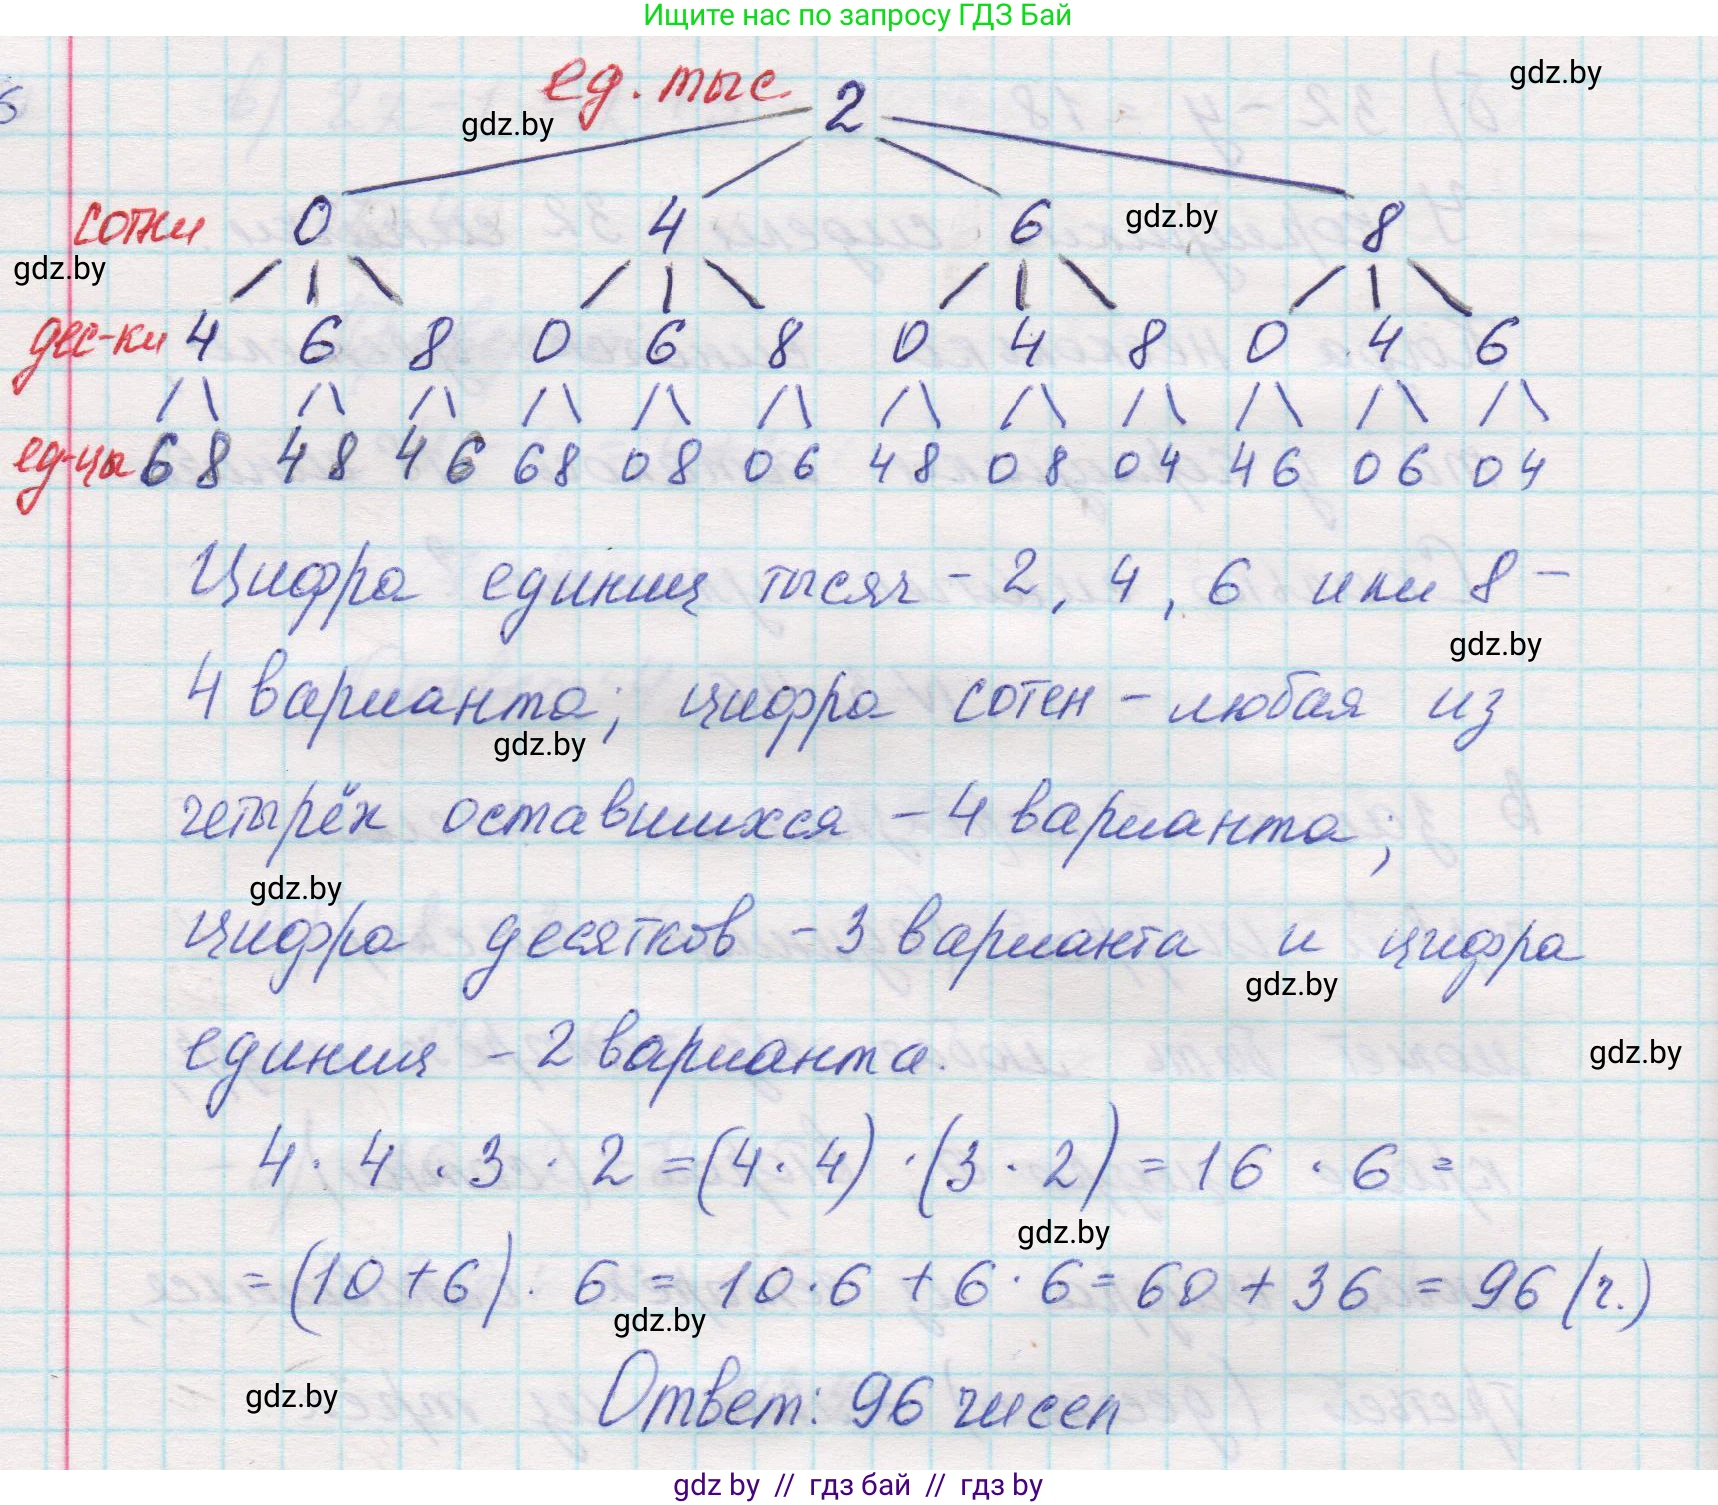 Ищите нас по запросу ГДЗ Бай
gdz.by
ед. тыс. 2
gdz.by
5
сотки 0 4 6 8
gdz.by
gdz.by
дес-ки 4 6 8 0 6 8 0 4 8 0 4 6
ед-цы 6 8 4 8 4 6 6 8 0 8 0 6 4 8 0 8 0 4 4 6 0 6 0 4
Цифра единиц тысяч - 2, 4, 6 или 8 -
gdz.by
4 варианта; цифра сотен - любая из
gdz.by
четырёх оставшихся - 4 варианта;
gdz.by
цифра десятков - 3 варианта и цифра
gdz.by
единиц - 2 варианта.
gdz.by
4 · 4 · 3 · 2 = (4 · 4) · (3 · 2) = 16 · 6 =
gdz.by
= (10 + 6) · 6 = 10 · 6 + 6 · 6 = 60 + 36 = 96 (ч.)
gdz.by
gdz.by
Ответ: 96 чисел
gdz by // гдз бай // гдз by